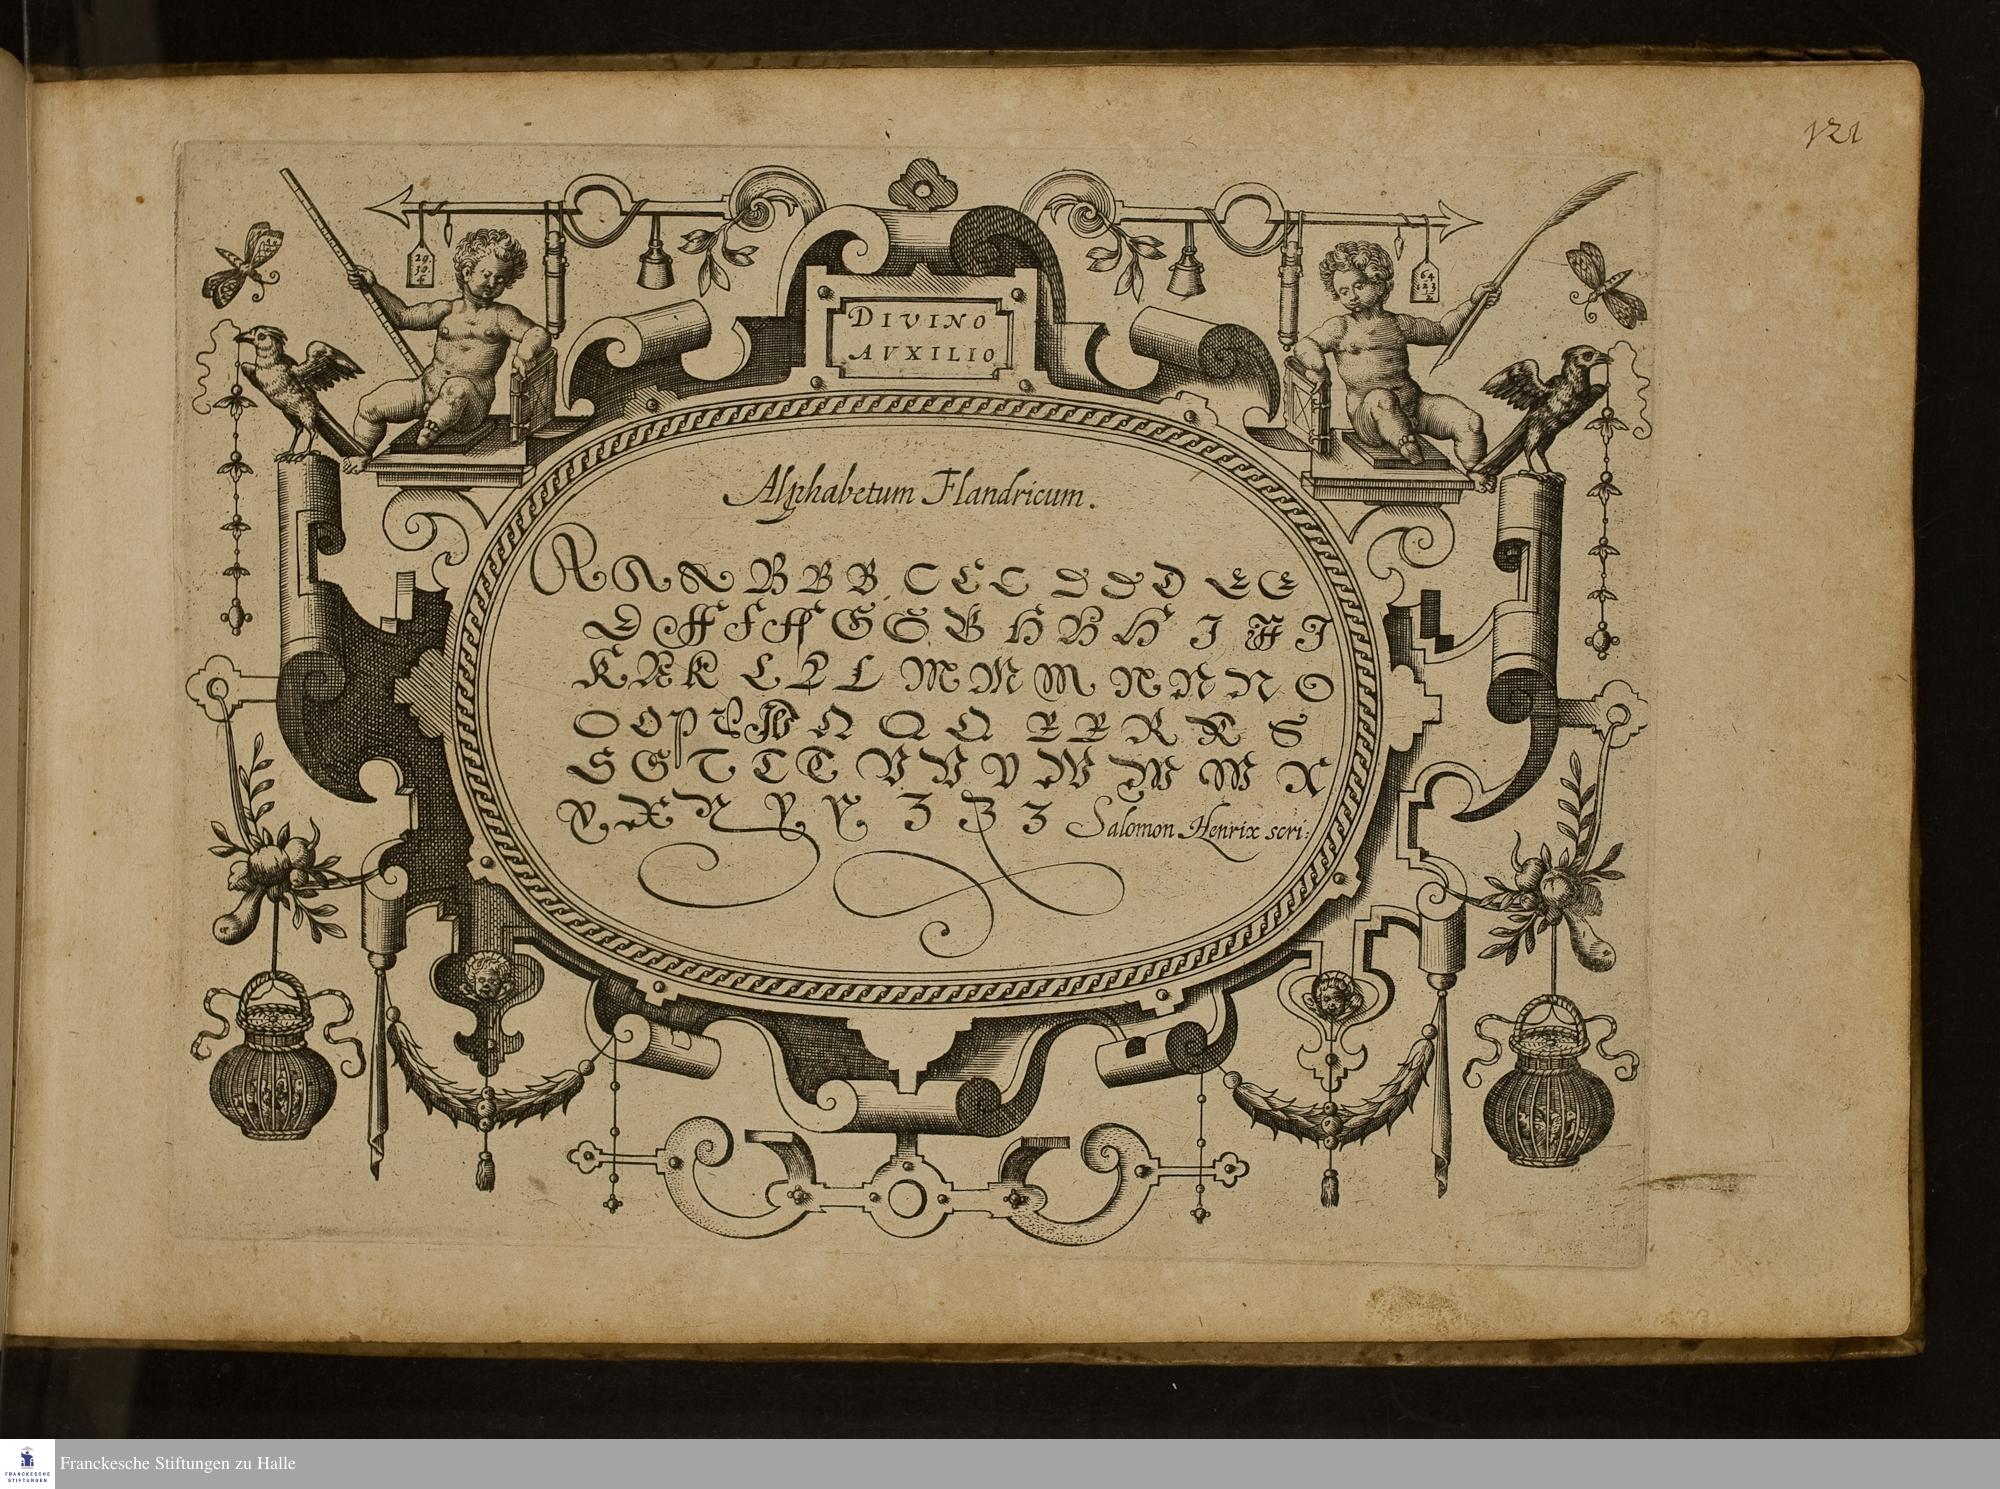 121
DIVINO
AVXILIO
29
64
23
Alphabetum Flandricum.
A A A B B B C C C D D D E E
E F F F G G G H H H I I I
K K K L L L M M M N N N O
O O P P P Q Q Q R R R R S
S S T T T V V V W W W X
X X Y Y Y Z Z Z Salomon Henrix scri:
Franckesche Stiftungen zu Halle
FRANCKESCHE
STIFTUNGEN